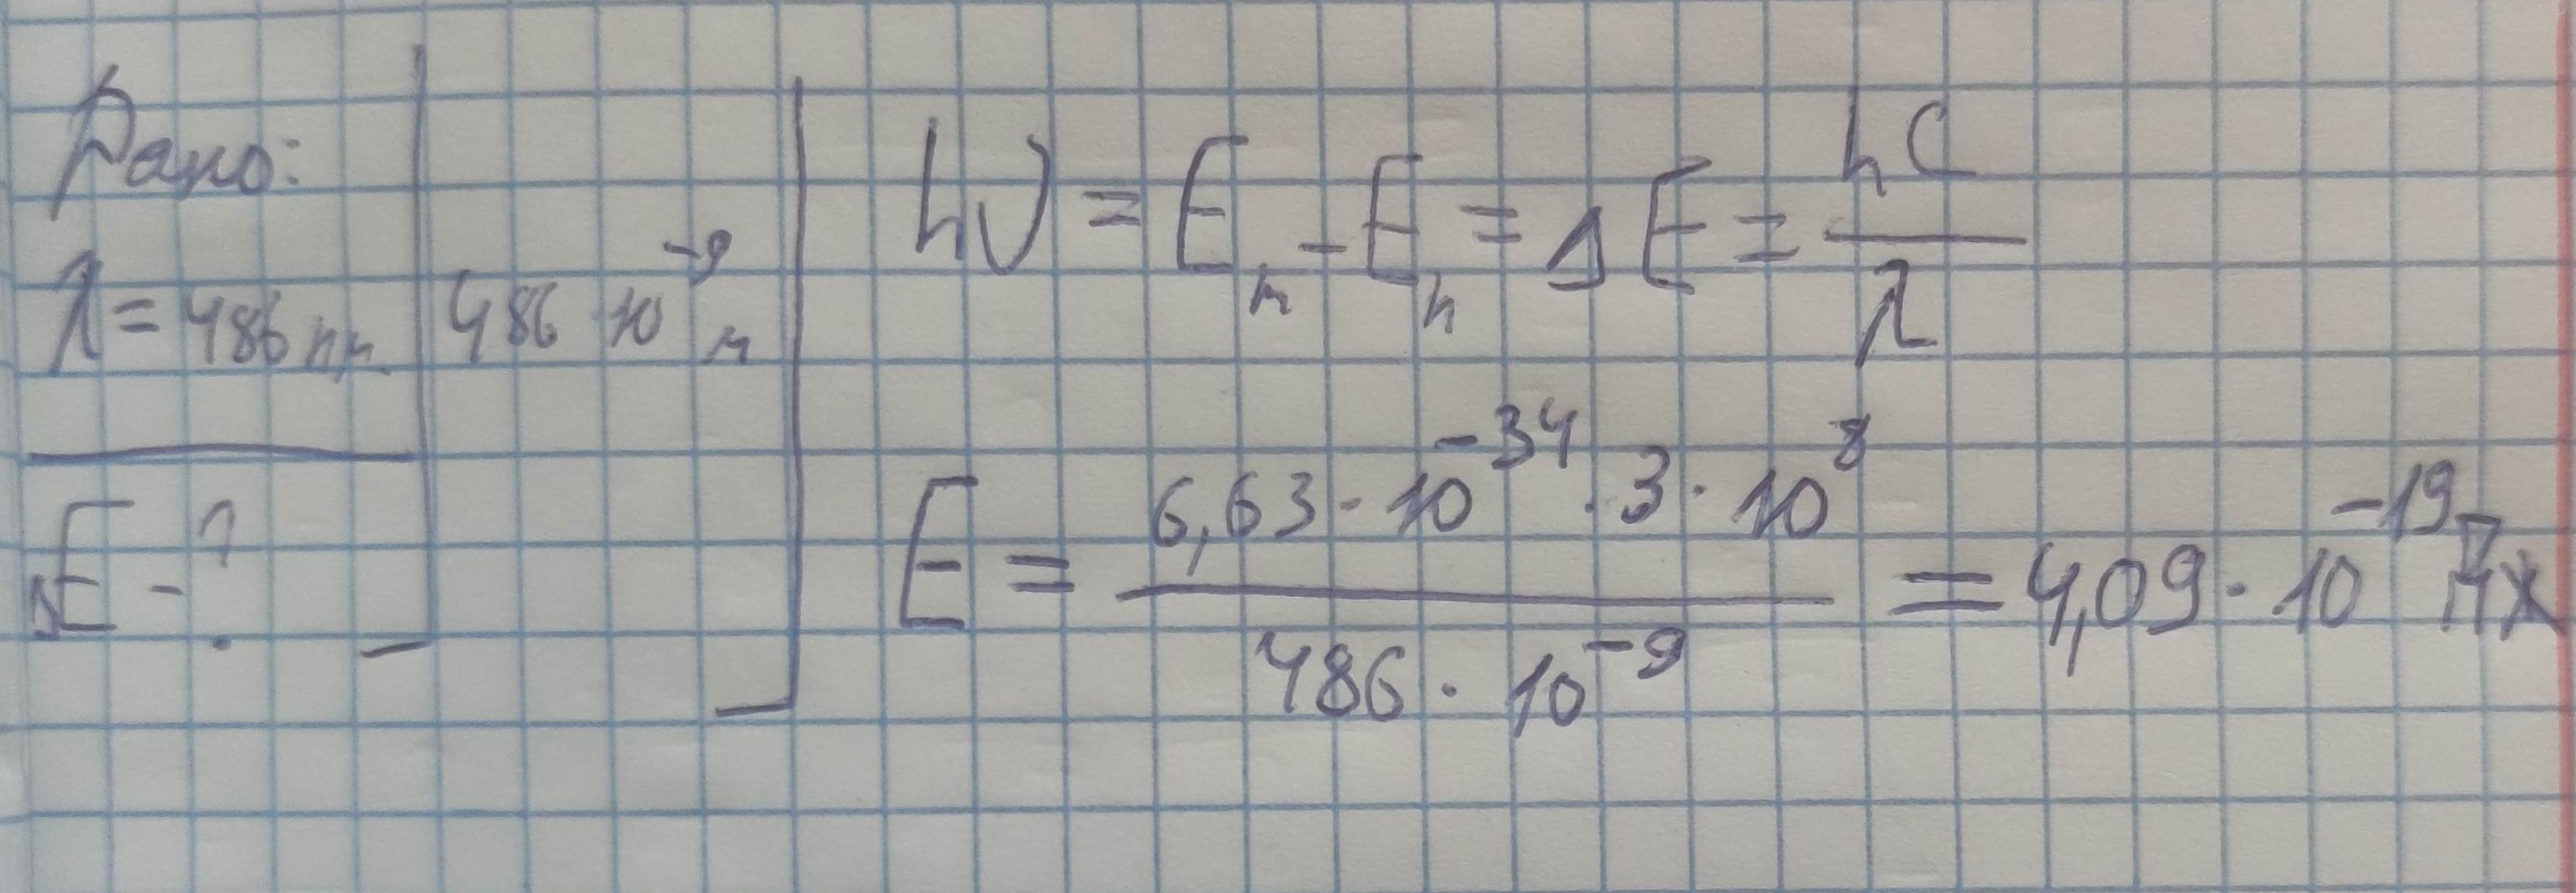 Дано:
λ = 486 нм
486 · 10⁻⁹ м
ΔE - ?
hν = Eₘ - Eₙ = ΔE = hc / λ
E = 6,63 · 10⁻³⁴ · 3 · 10⁸ / 486 · 10⁻⁹ = 4,09 · 10⁻¹⁹ Дж